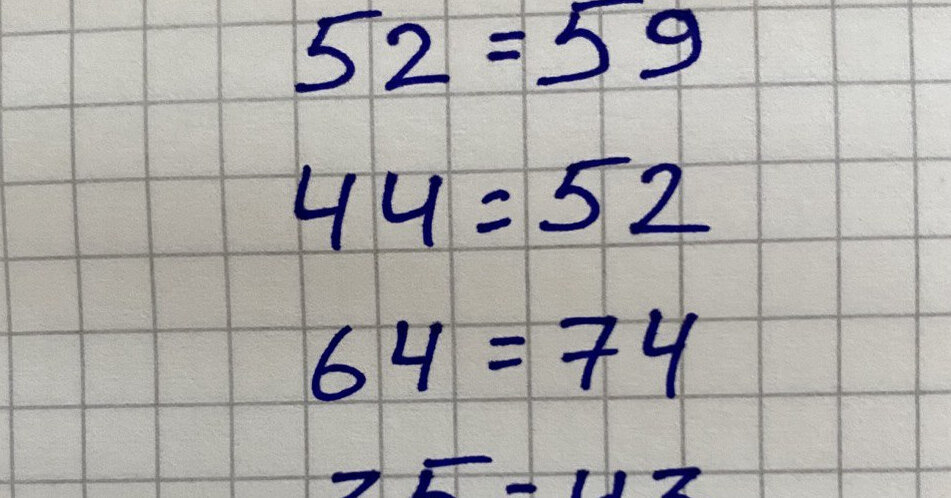 52 = 59
44 = 52
64 = 74